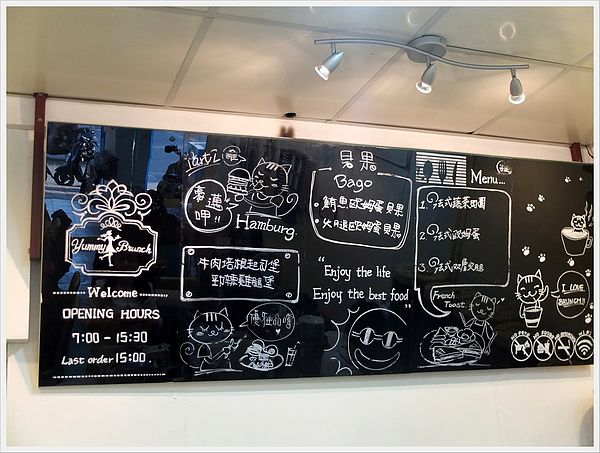 Yummy Brunch
Welcome
OPENING HOURS
7:00 - 15:30
Last order 15:00.
Hamburg.
牛肉培根起司堡
勁辣雞腿堡
貝果
Bago
鮪魚歐姆蛋貝果
火腿歐姆蛋貝果
"Enjoy the life
Enjoy the best food"
Menu...
1. 法式蔬菜田園
2. 法式歐姆蛋
3. 法式双層火腿
French
Toast.
I LOVE
BRUNCH!!